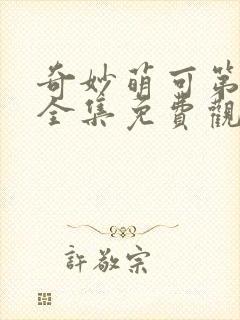 奇妙萌可第
全集免費觀
許敬宗